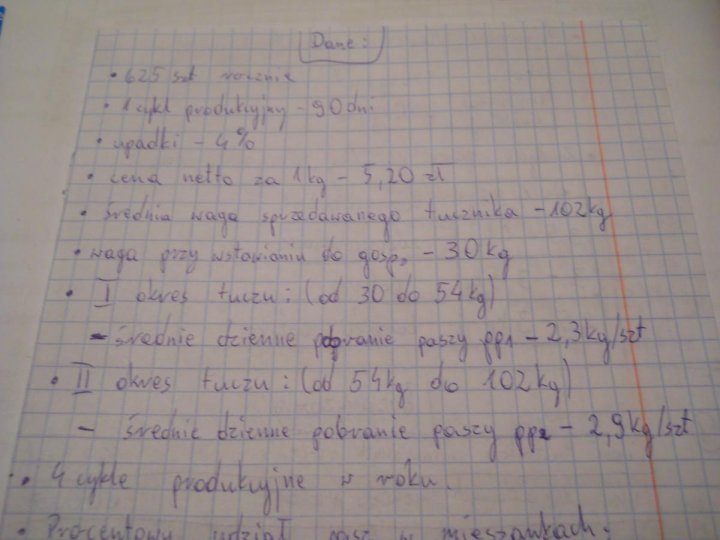 Dane:
• 625 szt rocznie
• 1 cykl produkcyjny - 90 dni
• upadki - 4%
• cena netto za 1kg - 5,20 zł
• średnia waga sprzedawanego tucznika - 102kg
• waga przy wstawianiu do gosp. - 30kg
• I okres tuczu: (od 30 do 54kg)
- średnie dzienne pobranie paszy pp1 - 2,3kg/szt
• II okres tuczu: (od 54kg do 102kg)
- średnie dzienne pobranie paszy pp2 - 2,9kg/szt
• 4 cykle produkcyjne w roku.
• Procentowy udział pasz w mieszankach: